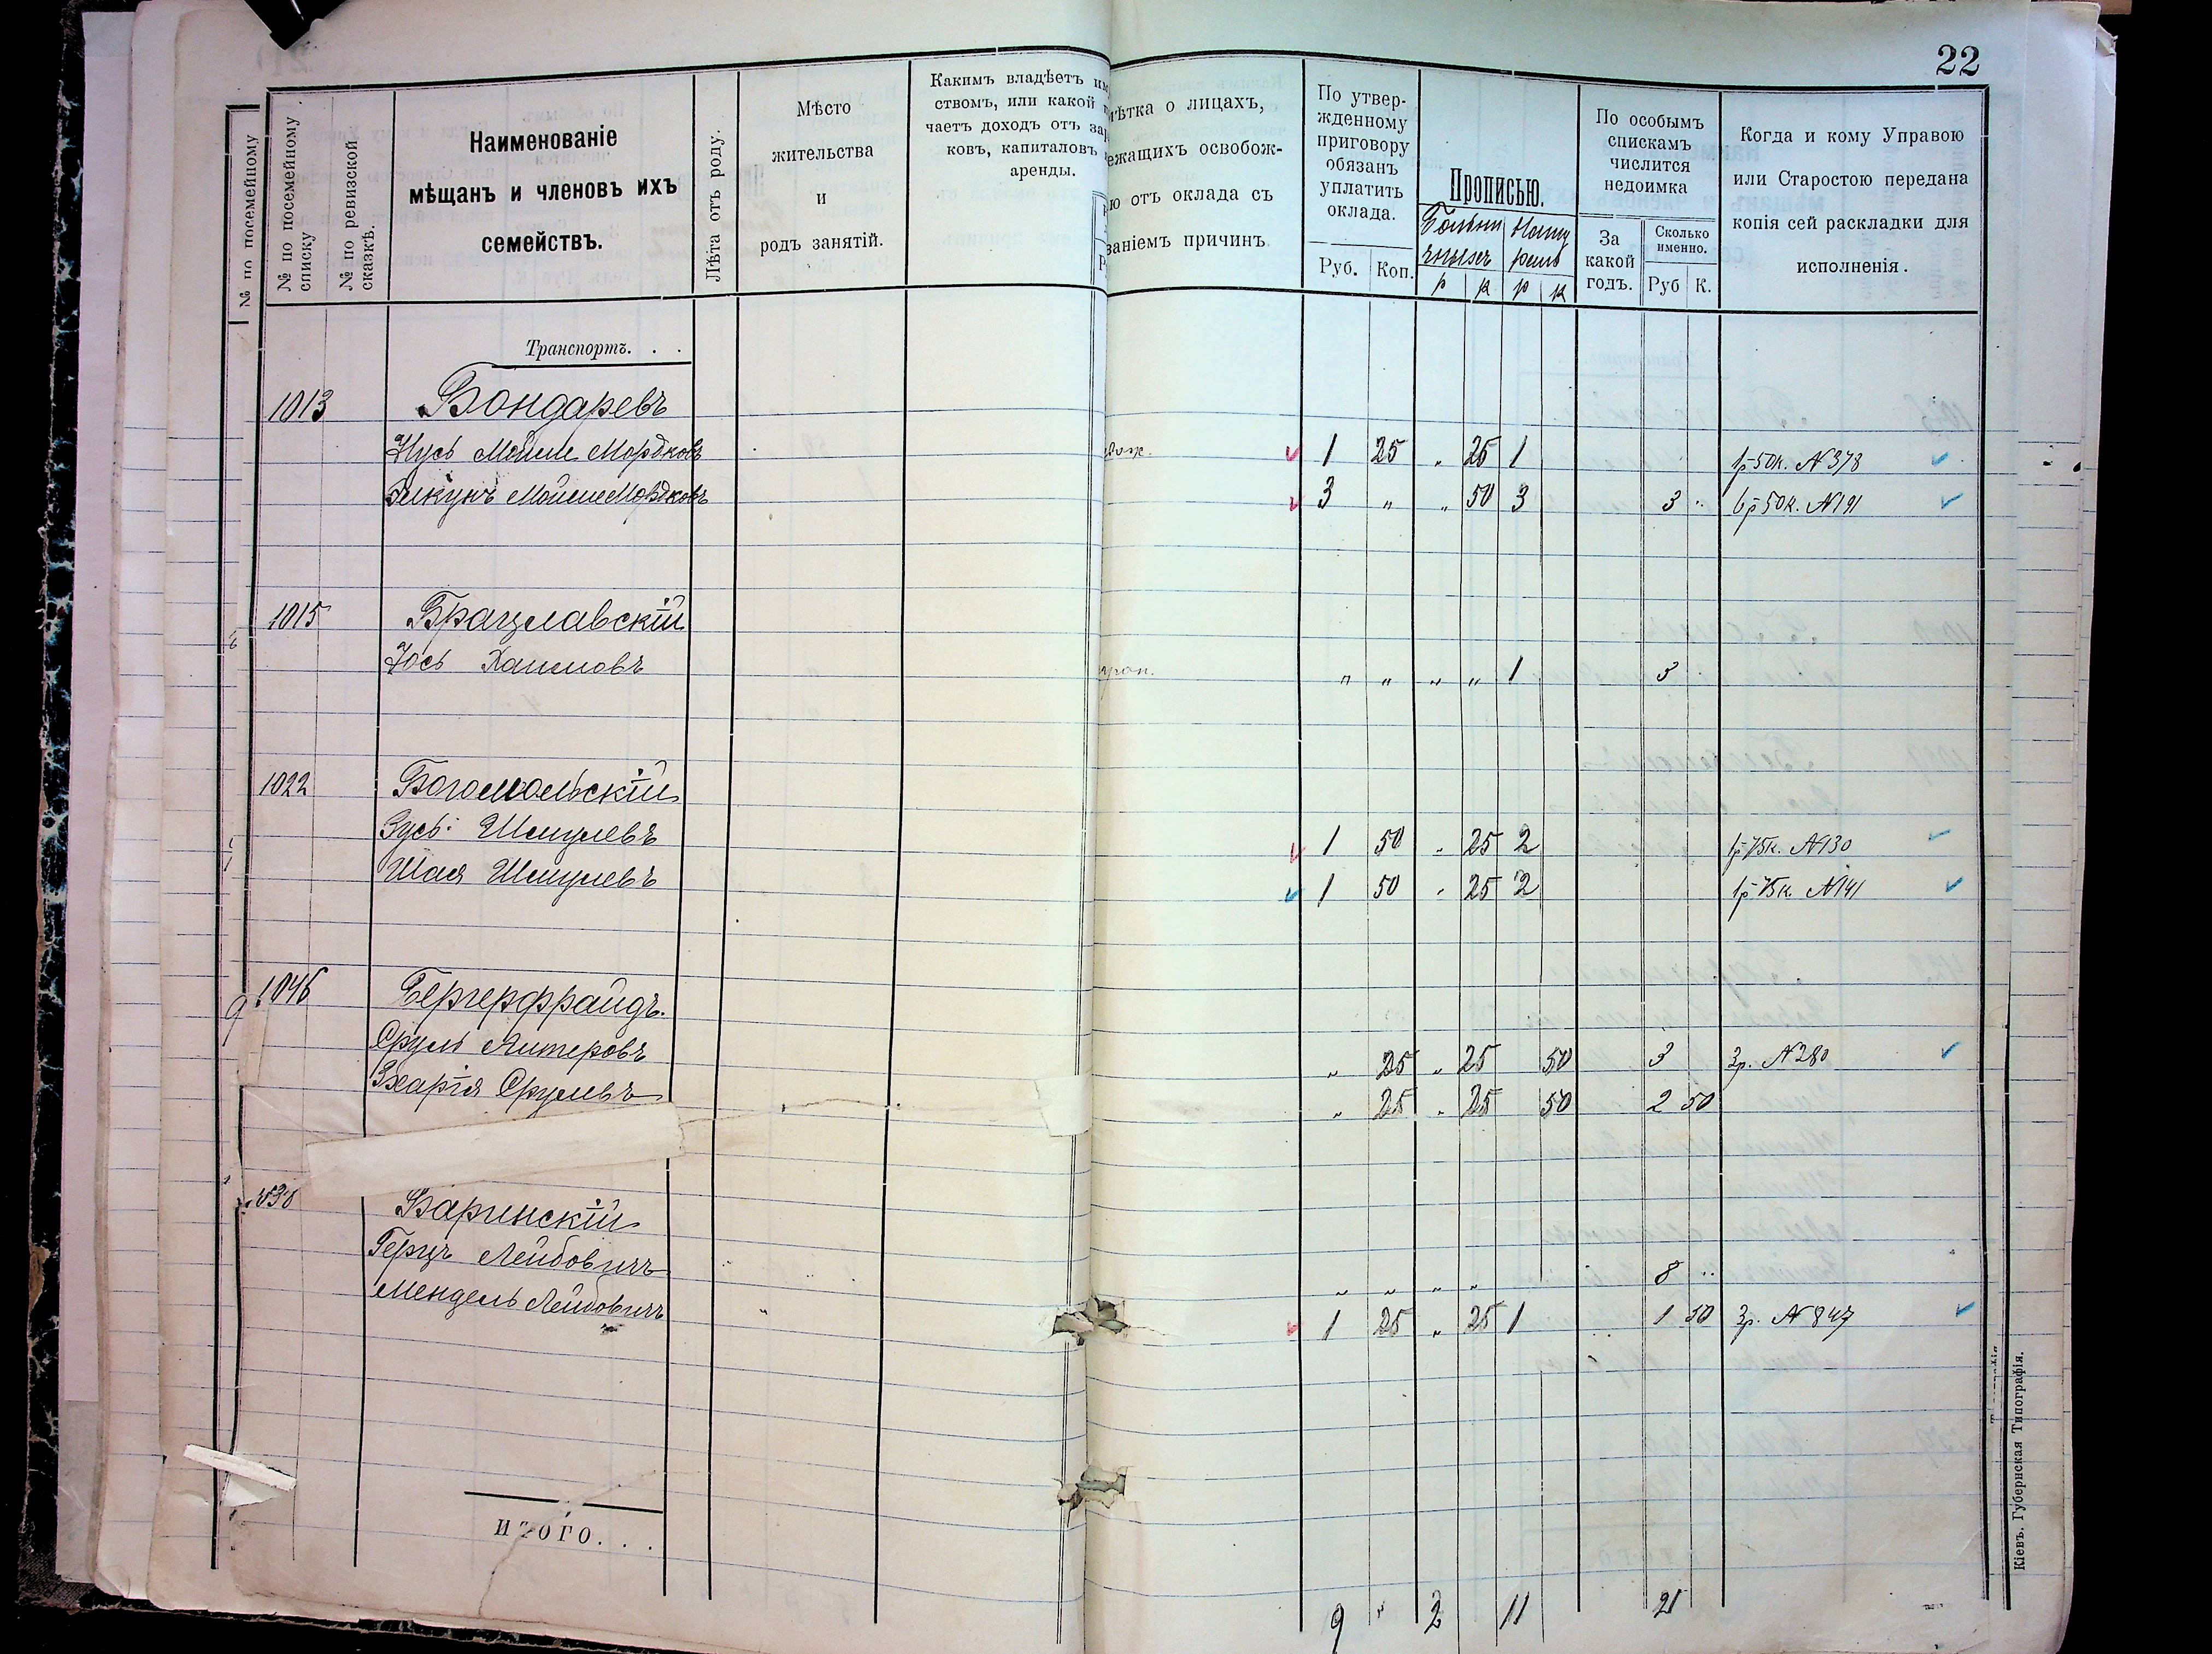 22
№ по посемейному
№ по посемейному списку
№ по ревизской сказкѣ.
Наименованіе
мѣщанъ и членовъ ихъ
семействъ.
Лѣта отъ роду.
Мѣсто
жительства
и
родъ занятій.
Какимъ владѣетъ
ствомъ, или какой
чаетъ доходъ отъ
ковъ, капиталовъ
аренды.
ѣтка о лицахъ,
ежащихъ освобож-
ю отъ оклада съ
заніемъ причинъ
По утвер-
жденному
приговору
обязанъ
уплатить
оклада.
Руб. Коп.
Прописью.
р к р к
По особымъ
спискамъ
числится
недоимка
За
какой
годъ.
Сколько
именно.
Руб К.
Когда и кому Управою
или Старостою передана
копія сей раскладки для
исполненія.
Транспортъ. . .
1013 Бондаревъ
Нусь Мойше Мордковъ 1 25 „ 25 1 1р 50к. № 378
Мойше Мордковъ 3 „ „ 50 3 3 „ 6р 50к. № 191
1015 Брацлавскій
Іось Хаимовъ „ „ „ „ 1 3
1022 Богомольскій
Зусь Шмулевъ 1 50 „ 25 2 1р 75к. № 130
Шая Шмулевъ 1 50 „ 25 2 1р 75к. № 141
1046 Бергерфрайдъ.
Сруль Алтеровъ „ 25 „ 25 50 3 3р. № 280
Зхарія Срулевъ „ 25 „ 25 50 2 50
Баринскій
Герцъ Лейбовичъ „ „ „ „ 8 „
Мендель Лейбовичъ 1 25 „ 25 1 1 50 3р. № 847
ИТОГО. . .
9 „ 2 11 21
Кіевъ. Губернская Типографія.